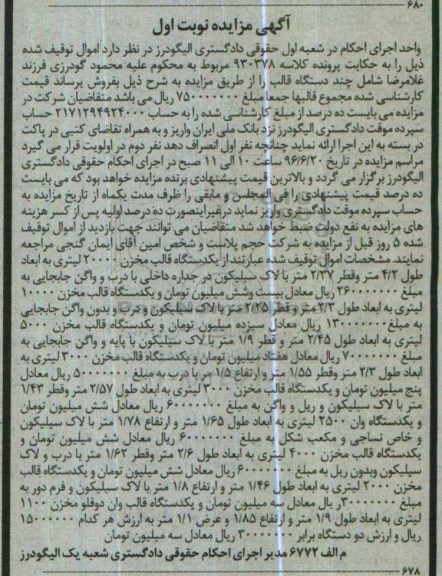 ۶۸۰
آگهی مزایده نوبت اول
واحد اجرای احکام در شعبه اول حقوقی دادگستری الیگودرز در نظر دارد اموال توقیف شده
ذیل را به حکایت پرونده کلاسه ۹۳۰۳۷۸ مربوط به محکوم علیه محمود گودرزی فرزند
غلامرضا شامل چند دستگاه قالب را از طریق مزایده به شرح ذیل بفروش برساند قیمت
کارشناسی شده مجموع قالبها جمعا مبلغ ۷۵۰۰۰۰۰۰۰ ریال می باشد متقاضیان شرکت در
مزایده می بایست ده درصد از مبلغ کارشناسی شده را به حساب ۲۱۷۱۲۹۴۹۲۴۰۰۰ حساب
سپرده موقت دادگستری الیگودرز نزد بانک ملی ایران واریز و به همراه تقاضای کتبی در پاکت
در بسته به این اجرا ارائه نماید چنانچه نفر اول انصراف دهد نفر دوم در اولویت قرار می گیرد
مراسم مزایده در تاریخ ۹۶/۶/۲۰ ساعت ۱۰ الی ۱۱ صبح در اجرای احکام حقوقی دادگستری
الیگودرز برگزار می گردد و بالاترین قیمت پیشنهادی برنده مزایده خواهد بود که می بایست
ده درصد قیمت پیشنهادی را فی المجلس و مابقی را ظرف مدت یکماه از تاریخ مزایده به
حساب سپرده موقت دادگستری واریز نماید درغیراینصورت ده درصد اولیه پس از کسر هزینه
های مزایده به نفع دولت ضبط خواهد شد متقاضیان می توانند جهت بازدید از اموال توقیف
شده ۵ روز قبل از مزایده به شرکت حجم پلاست و شخص امین آقای ایمان گنجی مراجعه
نمایند. مشخصات اموال توقیف شده عبارتند از یکدستگاه قالب مخزن ۲۰۰۰۰ لیتری به ابعاد
طول ۴/۲ متر وقطر ۲/۳۷ متر با لاک سیلیکون در جداره داخلی با درب و واگن جابجایی به
مبلغ ۲۶۰۰۰۰۰۰۰ ریال معادل بیست وشش میلیون تومان و یکدستگاه قالب مخزن ۱۰۰۰۰
لیتری به ابعاد طول ۲/۳ متر و قطر ۲/۲۵ متر با لاک سیلیکون و درب و بدون واگن جابجایی
به مبلغ ۱۳۰۰۰۰۰۰۰ ریال معادل سیزده میلیون تومان و یکدستگاه قالب مخزن ۵۰۰۰
لیتری به ابعاد طول ۲/۴۵ متر و قطر ۱/۹ متر با لاک سیلیکون با پایه و واگن جابجایی به
مبلغ ۷۰۰۰۰۰۰۰ ریال معادل هفتاد میلیون تومان و یکدستگاه قالب مخزن ۳۰۰۰ لیتری به
ابعاد طول ۲/۳ متر وقطر ۱/۵۵ متر و ارتفاع ۱/۵ متر با درب به مبلغ ۵۰۰۰۰۰۰۰ ریال معادل
پنج میلیون تومان و یکدستگاه قالب مخزن ۳۰۰۰ لیتری به ابعاد طول ۲/۵۷ متر وقطر ۱/۴۳
متر با لاک سیلیکون و ریل و واگن به مبلغ ۶۰۰۰۰۰۰۰ ریال معادل شش میلیون تومان
و یکدستگاه وان ۲۵۰۰ لیتری به ابعاد طول ۱/۶۵ متر و ارتفاع ۱/۷۸ متر با لاک سیلیکون
و خاص نساجی و مکعب شکل به مبلغ ۶۰۰۰۰۰۰۰ ریال معادل شش میلیون تومان و
یکدستگاه قالب مخزن ۴۰۰۰ لیتری به ابعاد طول ۲/۶ متر وقطر ۱/۶۳ متر با درب و لاک
سیلیکون وبدون ریل به مبلغ ۶۰۰۰۰۰۰۰ ریال معادل شش میلیون تومان و یکدستگاه قالب
مخزن ۲۰۰۰ لیتری به ابعاد طول ۱/۴۶ متر و ارتفاع ۱/۸ متر با لاک سیلیکون و فرم دور به
مبلغ ۳۰۰۰۰۰۰۰ ریال معادل سه میلیون تومان و یکدستگاه قالب وان دوقلو مخزن ۱۱۰۰
لیتری به ابعاد طول ۱/۹ متر و ارتفاع ۱/۸۵ و عرض ۱/۱ متر به ارزش هر کدام ۱۵۰۰۰۰۰۰
ریال و ارزش دو دستگاه برابر ۳۰۰۰۰۰۰۰ ریال معادل سه میلیون تومان
م الف ۶۷۷۲ مدیر اجرای احکام حقوقی دادگستری شعبه یک الیگودرز
۶۷۸